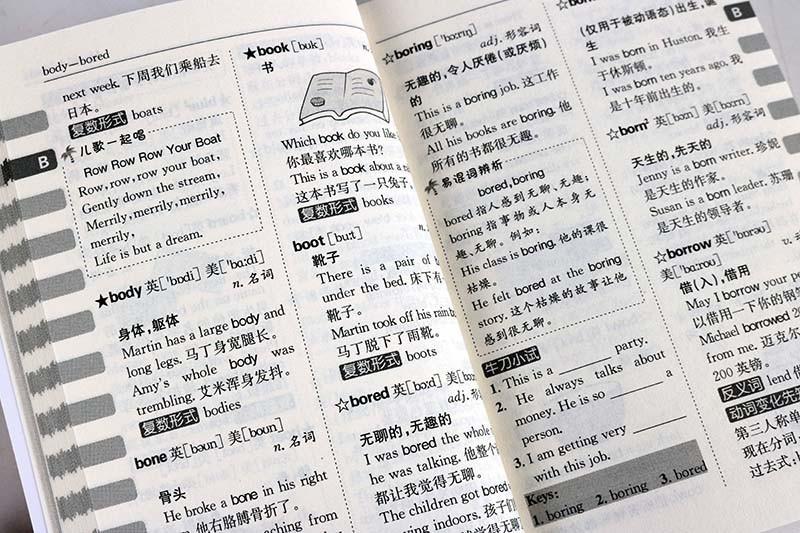 body—bored
next week. 下周我们乘船去
日本。
复数形式 boats
儿歌一起唱
Row Row Row Your Boat
Row, row, row your boat,
Gently down the stream,
Merrily, merrily, merrily,
merrily,
Life is but a dream.
★body 英['bɒdi] 美['bɑːdi]
n. 名词
身体，躯体
Martin has a large body and
long legs. 马丁身宽腿长。
Amy's whole body was
trembling. 艾米浑身发抖。
复数形式 bodies
bone 英[bəʊn] 美[boʊn]
n. 名词
骨头
He broke a bone in his right
他右胳膊骨折了。
from
B
★book [bʊk]
书
Which book do you like
你最喜欢哪本书？
This is a book about a
这本书写了一只兔子，
复数形式 books
boot [buːt]
靴子
There is a pair of
under the bed. 床下有
靴子。
Martin took off his
马丁脱下了雨靴。
复数形式 boots
☆bored 英[bɔːd] 美
adj. 形容
无聊的，无趣的
I was bored the whole
he was talking. 他整个
都让我觉得无聊。
The children got bored
indoors. 孩子们
觉得无聊
☆boring ['bɔːrɪŋ]
adj. 形容词
无趣的，令人厌倦(或厌烦)
的
This is a boring job. 这工作
很无聊。
All his books are boring. 他
所有的书都很无趣。
易混词辨析
bored, boring
bored 指人感到无聊、无趣；
boring 指事物或人本身无
趣、无聊。例如：
His class is boring. 他的课很
枯燥。
He felt bored at the boring
story. 这个枯燥的故事让他
感到很无聊。
牛刀小试
1. This is a ______ party.
2. He always talks about
money. He is so ______ a
person.
3. I am getting very ______
with this job.
Keys:
1. boring 2. boring 3. bored
B
(仅用于被动语态)出生，诞
生
I was born in Huston. 我生
于休斯顿。
I was born ten years ago. 我
是十年前出生的。
☆born² 英[bɔːn] 美[bɔːrn]
adj. 形容词
天生的，先天的
Jenny is a born writer. 珍妮
是天生的作家。
Susan is a born leader. 苏珊
是天生的领导者。
☆borrow 英['bɒrəʊ]
美['bɑːroʊ]
借(入)，借用
May I borrow your
以借用一下你的钢
Michael borrowed 2
from me. 迈克尔
200 英镑。
反义词 lend 借
动词变化
第三人称单
现在分词
过去式：b